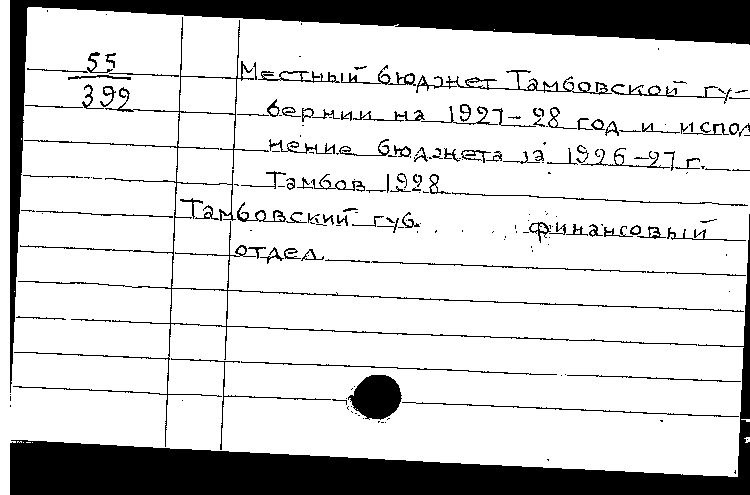 55
392
Местный бюджет Тамбовской гу-
бернии на 1927-28 год и испол
нение бюджета за 1926-27 г.
Тамбов, 1928.
Тамбовский губ. финансовый
отдел.